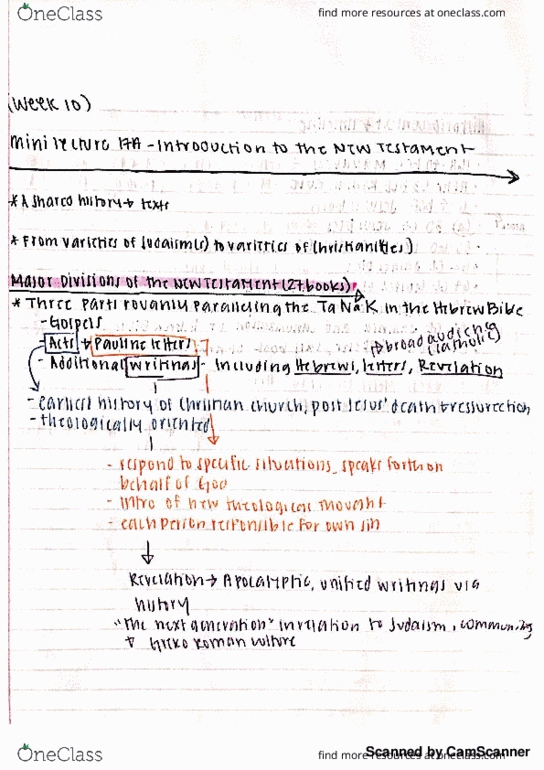 OneClass
find more resources at oneclass.com
(Week 10)
Mini lecture 17A - Introduction to the New Testament
* A shared history → texts
* From varieties of Judaism(s) to varieties of Christianities)
Major Divisions of the New Testament (27 books)
* Three parts roughly paralleling the TaNaK in the Hebrew Bible
- Gospels
→ broad audience (catholic)
- Acts + Pauline letters
- Additional writings - including Hebrews, letters, Revelation
- earliest history of Christian church, post Jesus' death + ressurection
- theologically oriented
- respond to specific situations, speaks forth on
behalf of God
- intro of new theological thought
- each person responsible for own sin
Revelation → Apocalyptic, unified writings via
history
"the next generation" in relation to Judaism, community
+ Greko Roman culture
OneClass
find more resources at oneclass.com
Scanned by CamScanner